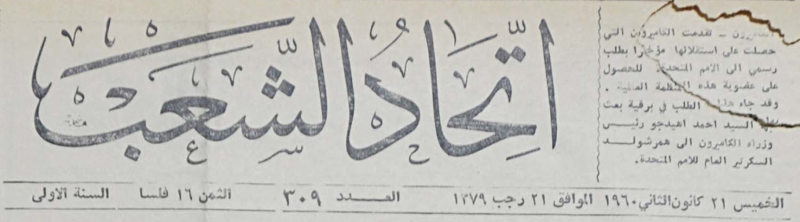 اتحاد الشعب
الكاميرون ــ تقدمت الكاميرون التي
حصلت على استقلالها مؤخرا بطلب
رسمي الى الامم المتحدة للحصول
على عضوية هذه المنظمة
وقد جاء الطلب في برقية بعث
بها السيد احمد اهيدجو رئيس
وزراء الكاميرون الى همرشولد
السكرتير العام للامم المتحدة.
الخميس ٢١ كانون الثاني ١٩٦٠ الموافق ٢١ رجب ١٣٧٩ العــدد ٣٠٩ الثمن ١٦ فلسا السنة الاولى